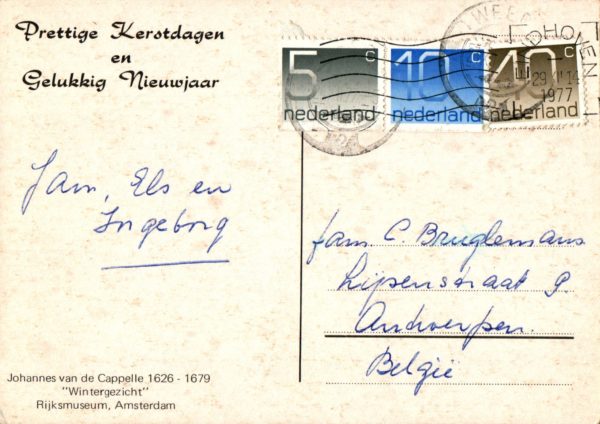 Prettige Kerstdagen
en
Gelukkig Nieuwjaar
5 c
nederland
10 c
nederland
40 c
nederland
1977
Jan, Els en
Ingeborg
fam. C. Bruglemans
Lipenstraat 9.
Andwerpen.
België
Johannes van de Cappelle 1626 - 1679
"Wintergezicht"
Rijksmuseum, Amsterdam